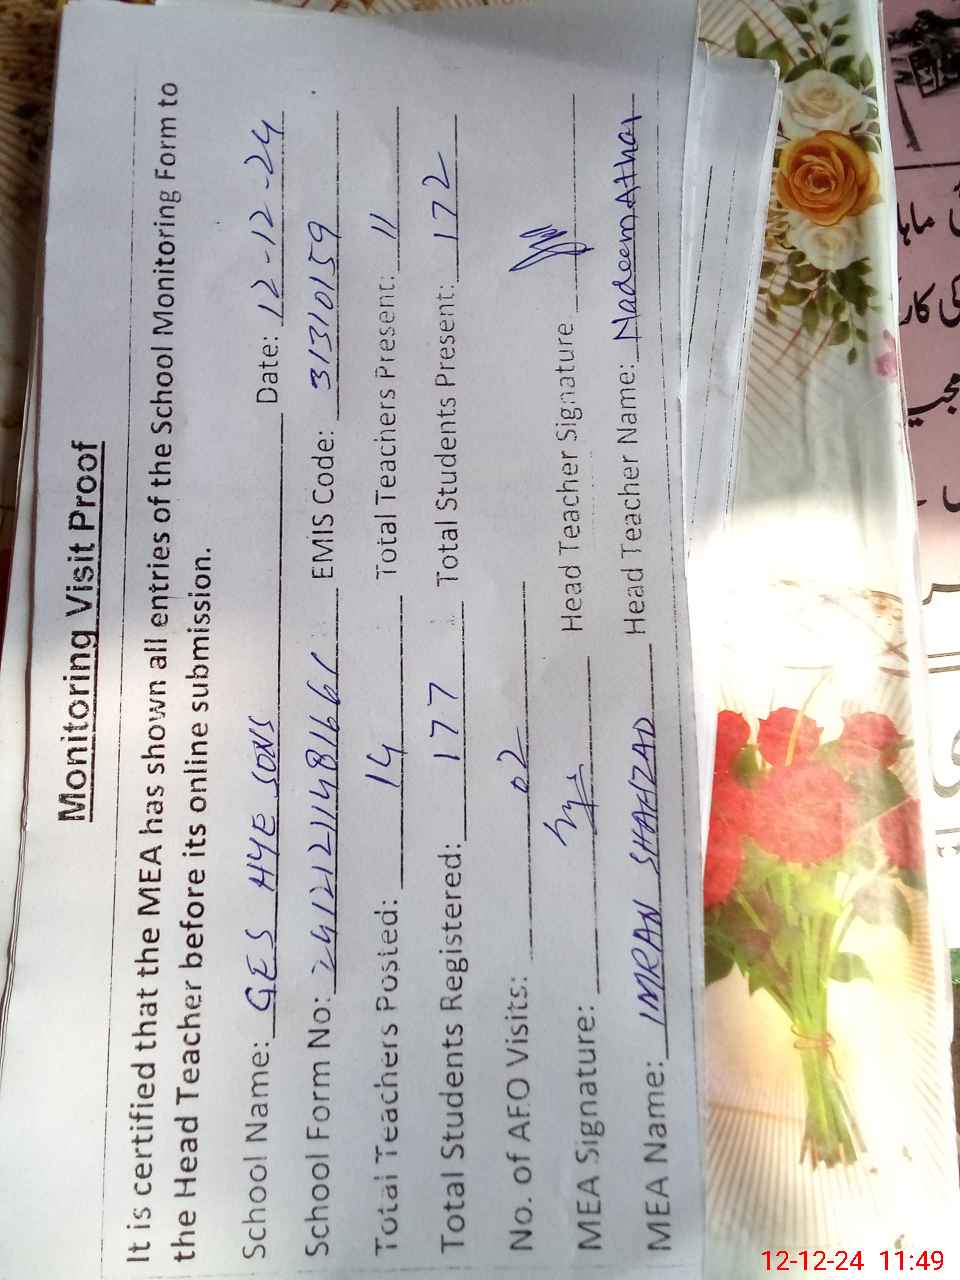 Monitoring Visit Proof
It is certified that the MEA has shown all entries of the School Monitoring Form to
the Head Teacher before its online submission.
School Name: GES HYE SONS Date: 12-12-24
School Form No: 24121211481661 EMIS Code: 31310159
Total Teachers Posted: 14 Total Teachers Present: 11
Total Students Registered: 177 Total Students Present: 172
No. of AEO Visits: 02
MEA Signature: Head Teacher Signature
MEA Name: IMRAN SHAHZAD Head Teacher Name: Nadeem Athar
کی کار
12-12-24 11:49